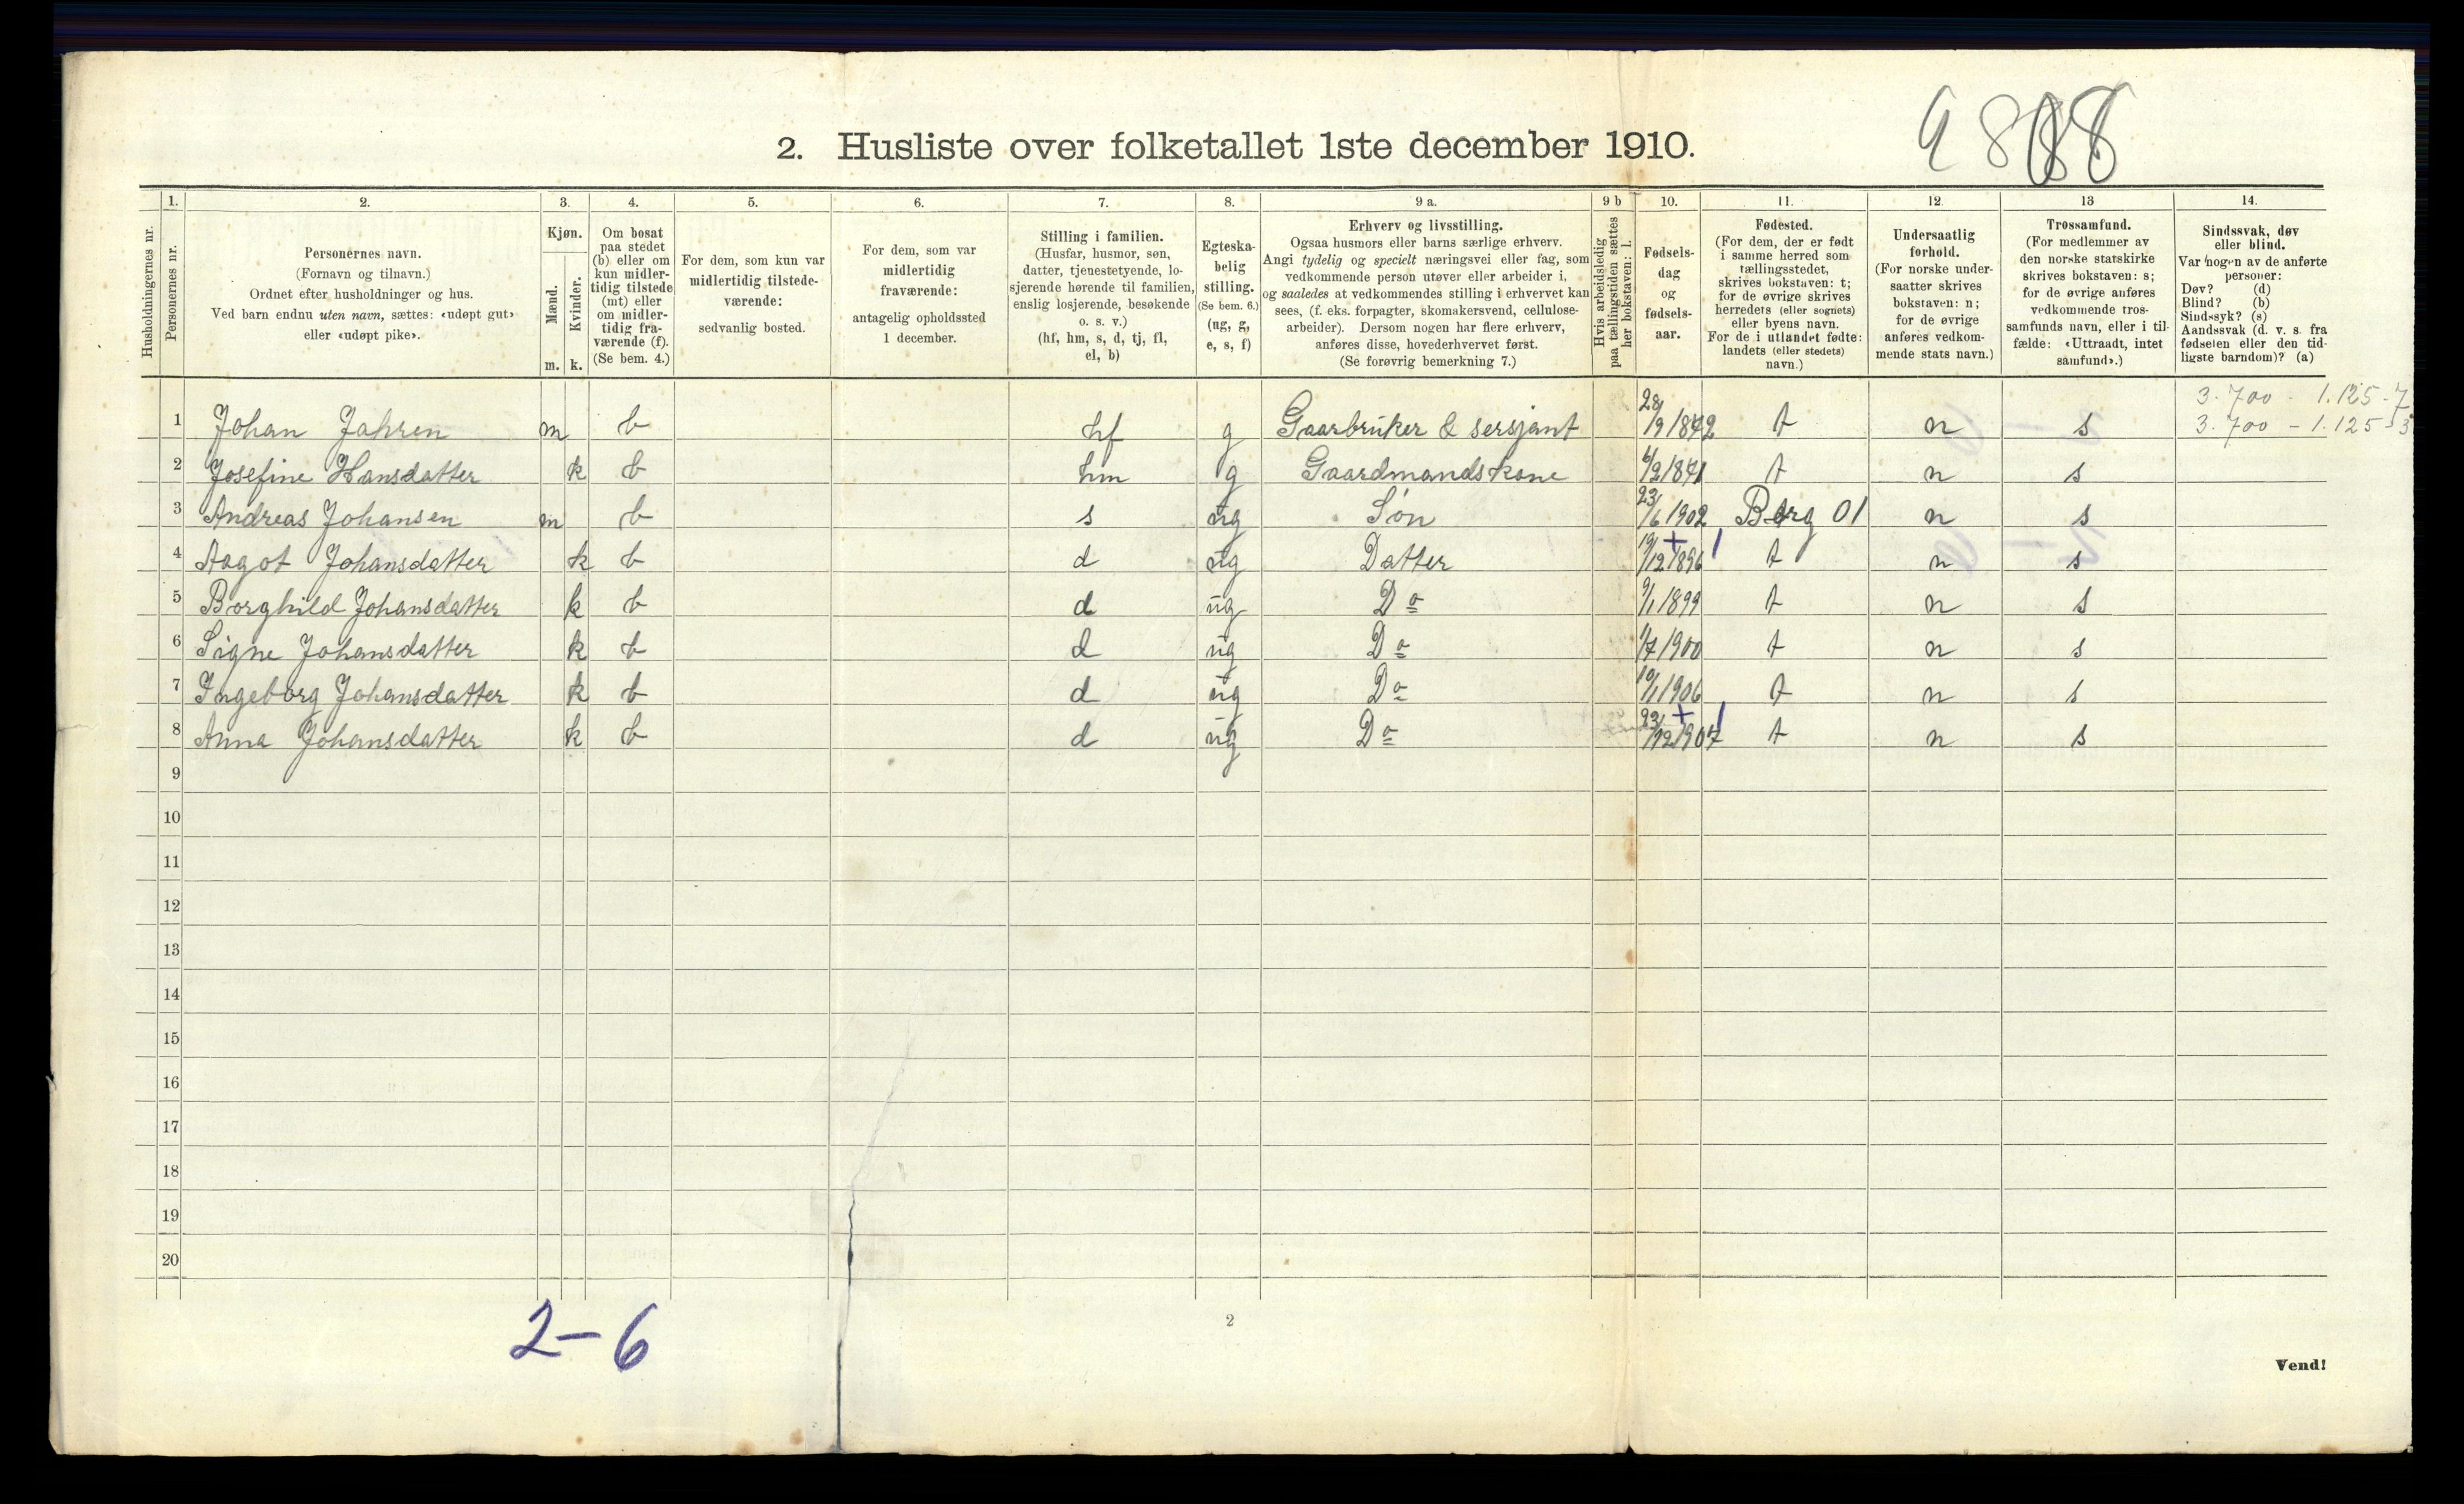 2. Husliste over folketallet 1ste december 1910.
Husholdningernes nr.
1. Personernes nr.
2. Personernes navn.
(Fornavn og tilnavn.)
Ordnet efter husholdninger og hus.
Ved barn endnu uten navn, sættes: «udøpt gut»
eller «udøpt pike».
3. Kjøn.
Mænd. Kvinder.
m. k.
4. Om bosat
paa stedet
(b) eller om
kun midler-
tidig tilstede
(mt) eller
om midler-
tidig fra-
værende (f).
(Se bem. 4.)
5. For dem, som kun var
midlertidig tilstede-
værende:
sedvanlig bosted.
6. For dem, som var
midlertidig
fraværende:
antagelig opholdssted
1 december.
7. Stilling i familien.
(Husfar, husmor, søn,
datter, tjenestetyende, lo-
sjerende hørende til familien,
enslig losjerende, besøkende
o. s. v.)
(hf, hm, s, d, tj, fl,
el, b)
8. Egteska-
belig
stilling.
(Se bem. 6.)
(ug, g,
e, s, f)
9 a. Erhverv og livsstilling.
Ogsaa husmors eller barns særlige erhverv.
Angi tydelig og specielt næringsvei eller fag, som
vedkommende person utøver eller arbeider i,
og saaledes at vedkommendes stilling i erhvervet kan
sees, (f. eks. forpagter, skomakersvend, cellulose-
arbeider). Dersom nogen har flere erhverv,
anføres disse, hovederhvervet først.
(Se forøvrig bemerkning 7.)
9 b Hvis arbeidsledig
paa tællingstiden sættes
her bokstaven: l.
10. Fødsels-
dag
og
fødsels-
aar.
11. Fødested.
(For dem, der er født
i samme herred som
tællingsstedet,
skrives bokstaven: t;
for de øvrige skrives
herredets (eller sognets)
eller byens navn.
For de i utlandet fødte:
landets (eller stedets)
navn.)
12. Undersaatlig
forhold.
(For norske under-
saatter skrives
bokstaven: n;
for de øvrige
anføres vedkom-
mende stats navn.)
13 Trossamfund.
(For medlemmer av
den norske statskirke
skrives bokstaven: s;
for de øvrige anføres
vedkommende tros-
samfunds navn, eller i til-
fælde: «Uttraadt, intet
samfund».)
14. Sindssvak, døv
eller blind.
Var nogen av de anførte
personer:
Døv? (d)
Blind? (b)
Sindssyk? (s)
Aandssvak (d. v. s. fra
fødselen eller den tid-
ligste barndom)? (a)
3.700 - 1.125-7
1 Johan Jahren m b hf g Gaarbruker & sersjant 28/9 1842 t n s 3.700 - 1.125-3
2 Josefine Hansdatter k b hm g Gaardmandskone 6/2 1871 t n s
3 Andreas Johansen m b s ug Søn 23/6 1902 Borg 01 n s
4 Aagot Johansdatter k b d ug Datter 19/12 1896 t n s
5 Borghild Johansdatter k b d ug Do 9/1 1899 t n s
6 Signe Johansdatter k b d ug Do 1/7 1900 t n s
7 Ingeborg Johansdatter k b d ug Do 10/1 1906 t n s
8 Anna Johansdatter k b d ug Do 23/12 1907 t n s
9
10
11
12
13
14
15
16
17
18
19
20
2-6
2
Vend!